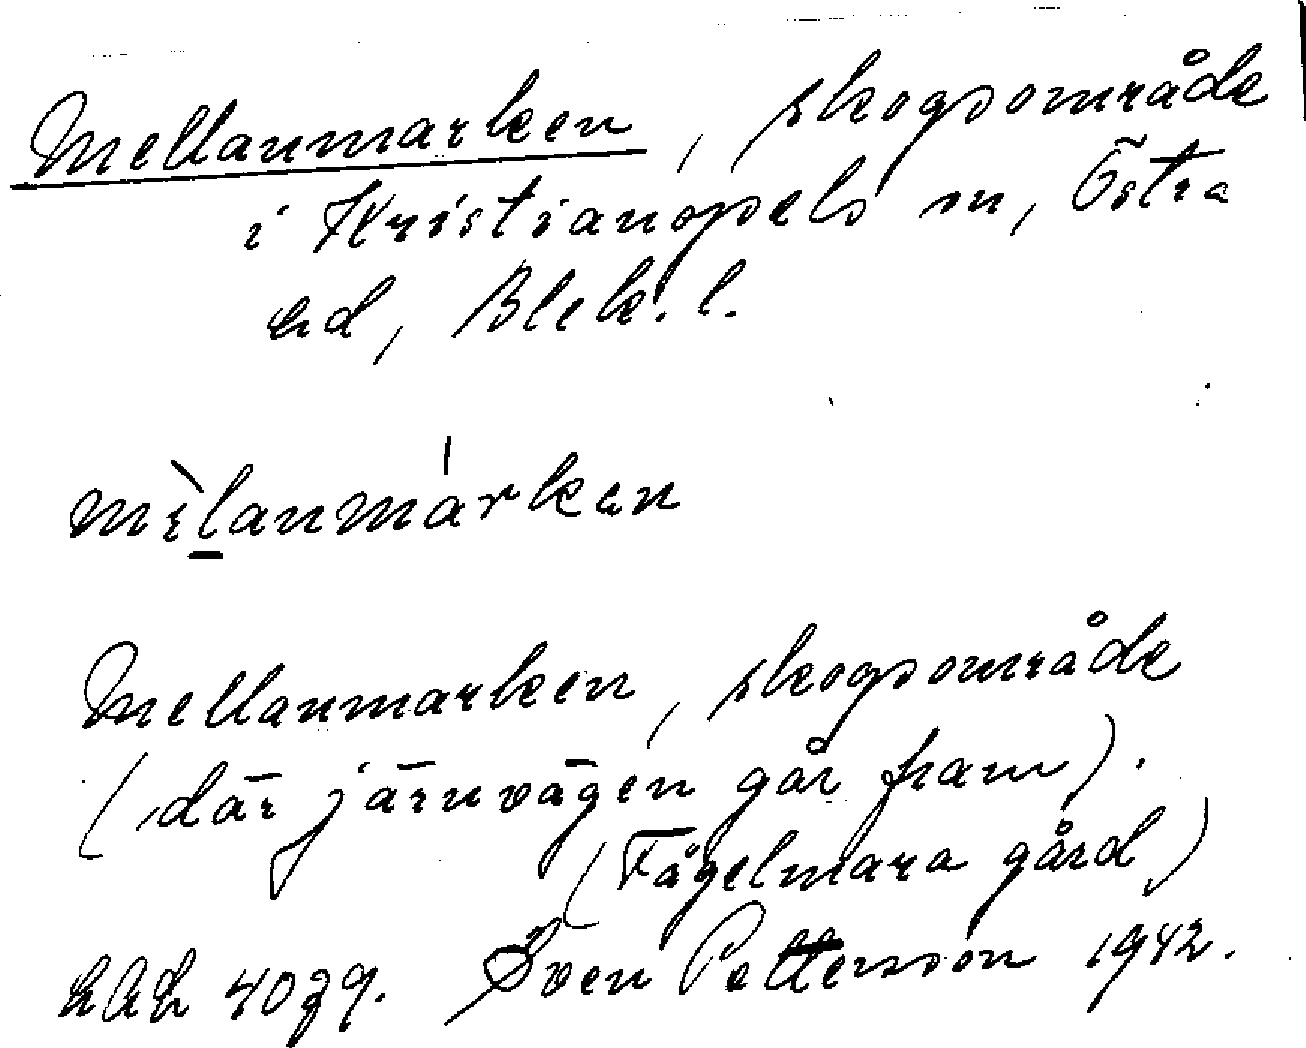 Mellanmarken, skogsområde
i Kristianopels sn, Östra
hd, Blek. l.
mèlanmárken
Mellanmarken, skogsområde
(där järnvägen går fram).
(Fågelmara gård)
Sven Petterson 1942.